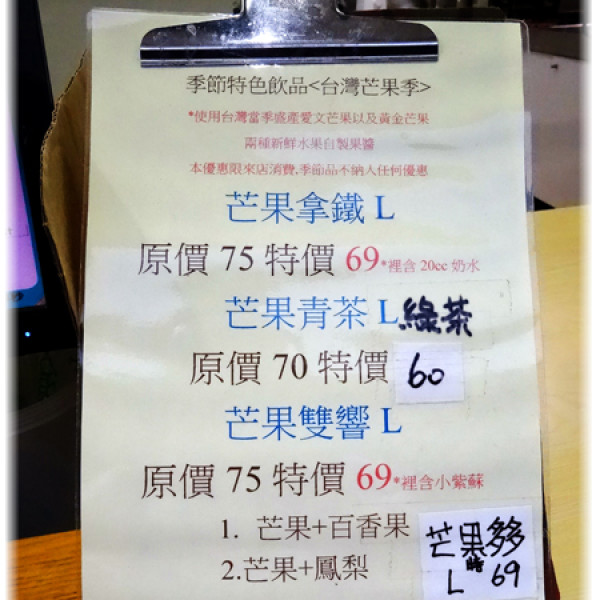 季節特色飲品<台灣芒果季>
*使用台灣當季盛產愛文芒果以及黃金芒果
兩種新鮮水果自製果醬
本優惠限來店消費,季節品不納入任何優惠
芒果拿鐵 L
原價 75 特價 69 *裡含 20cc 奶水
芒果青茶 L 綠茶
原價 70 特價 60
芒果雙響 L
原價 75 特價 69 *裡含小紫蘇
1. 芒果+百香果
2.芒果+鳳梨
芒果多多
L 69